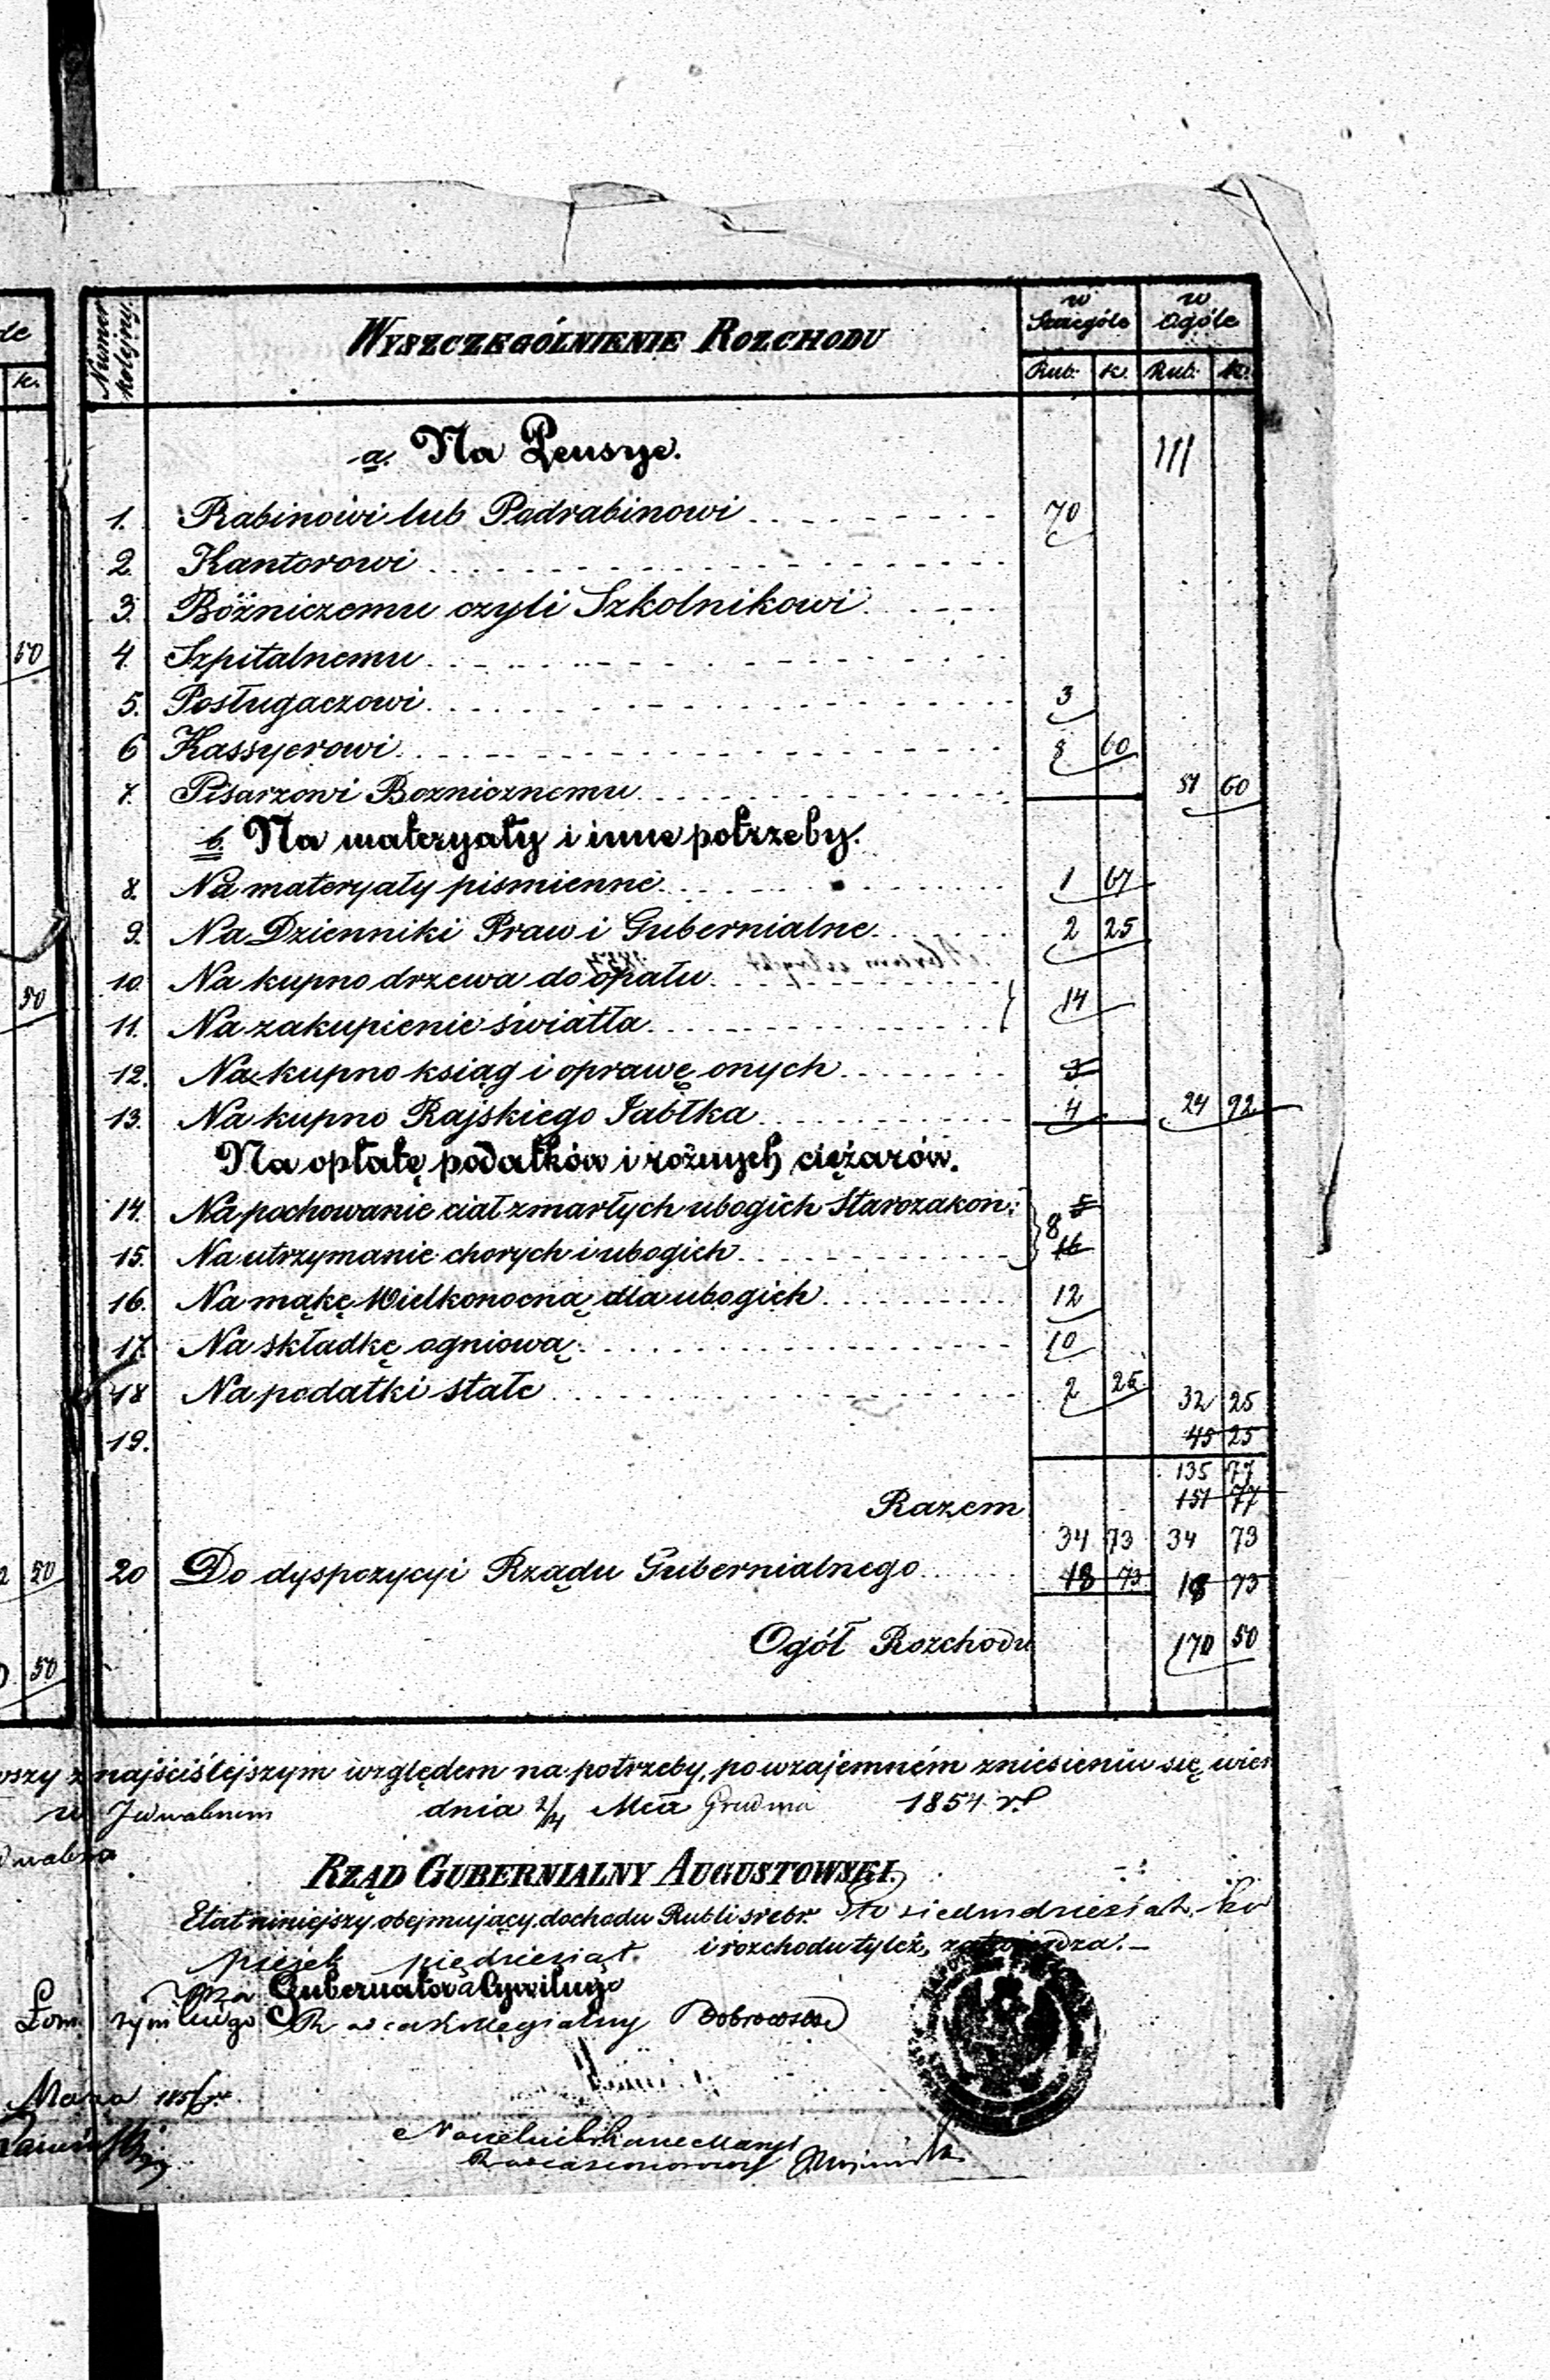 de
k.
50
50
50
50
Numer kolejny.
WYSZCZEGÓLNIENIE ROZCHODU
w Szczególe
w Ogóle
Rub. k. Rub. k.
a. Na Pensye.
1. Rabinowi lub Podrabinowi 70
2. Kantorowi
3. Bóżniczemu czyli Szkolnikowi
4. Szpitalnemu
5. Posługaczowi 3
6 Kassyerowi 8 60
7. Pisarzowi Boznicznemu 60
b. Na materyały i inne potrzeby.
8. Na materyały piśmienne 1 67
9. Na Dzienniki Praw i Gubernialne 2 25
10. Na kupno drzewa do opału
11. Na zakupienie światła } 14
12. Na kupno ksiąg i oprawę onych 3
13. Na kupno Rajskiego Jabłka 4 24 92
Na opłatę podatków i różnych ciężarów.
14. Na pochowanie ciał zmarłych ubogich Starozakon: 5
15. Na utrzymanie chorych i ubogich } 8 16
16. Na mąkę Wielkonocną dla ubogich 12
17. Na składkę ogniową 10
18 Na podatki stałe 2 25 32 25
19. 45 25
135 77
Razem 151 77
34 73 34 73
20 Do dyspozycyi Rządu Gubernialnego 18 73 18 73
Ogół Rozchodu 170 50
najściślejszym względem na potrzeby, po wzajemném zniesieniu się, wier
w Jedwabnem dnia 2/14 Mca Grudnia 1854 r.
RZĄD GUBERNIALNY AUGUSTOWSKI.
Etat niniejszy obejmujący dochodu Rubli srebr. Sto siedmdziesiąt ko
piejek pięćdziesiąt i rozchodu tyleż, zatwierdza.
Gubernatora Cywilnego
Dobrowolski
Naczelnik Kancellaryi